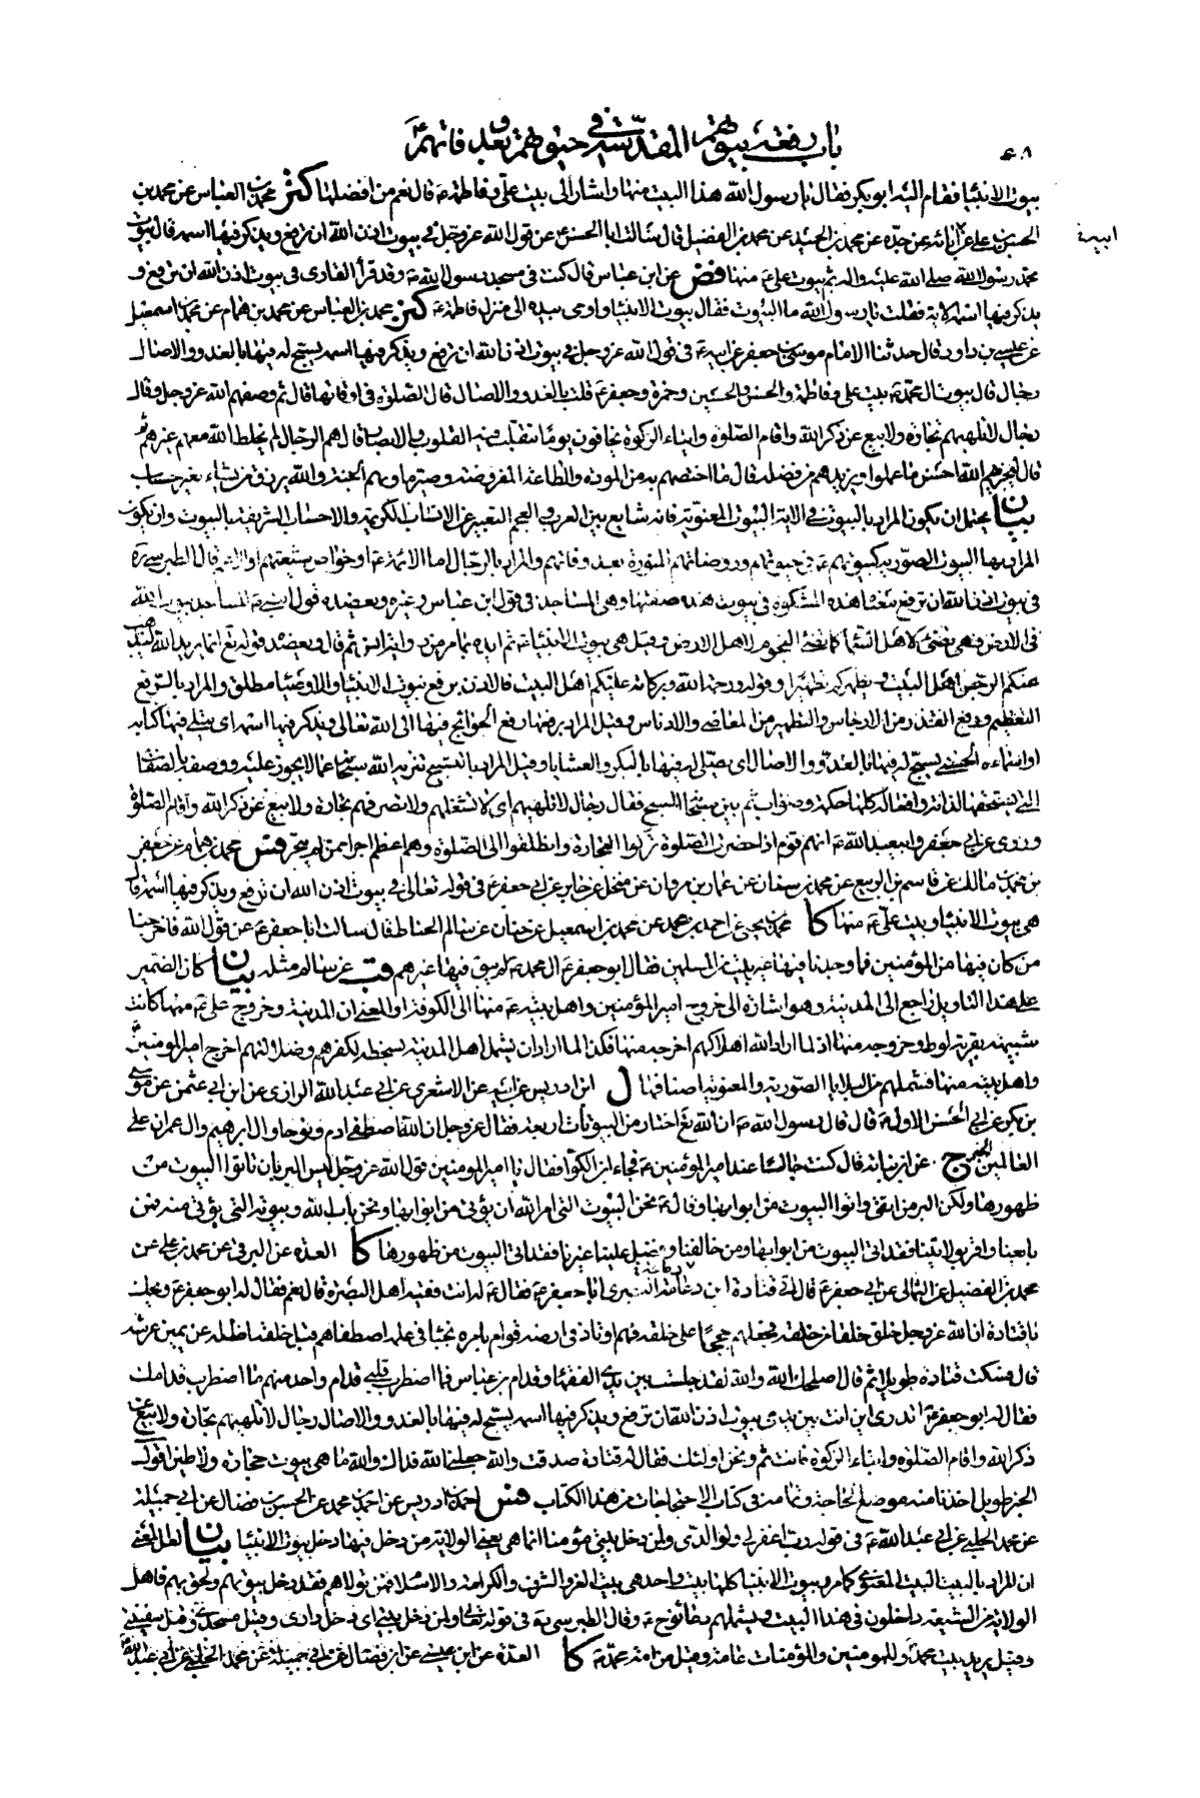 باب رفعة بيوتهم المقدسة في حيوتهم وبعد وفاتهم ع
بيوت الانبياء فقام اليه ابو بكر فقال يا رسول الله هذا البيت منها واشار الى بيت علي وفاطمة ع قال نعم من افضلها كنز محمد بن العباس عن محمد بن
الحسن بن علي عن ابيه عن جده عن محمد بن الحميد عن محمد بن الفضيل قال سالت ابا الحسن ع عن قول الله عز وجل في بيوت اذن الله ان ترفع ويذكر فيها اسمه قال بيوت
ابيه
محمد رسول الله صلى الله عليه واله ثم بيوت علي ع منها فض عن ابن عباس قال كنت في مسجد رسول الله ص وقد قرأ القارى في بيوت اذن الله ان ترفع و
يذكر فيها اسمه الاية فقلت يا رسول الله ما البيوت فقال بيوت الانبياء واومى بيده الى منزل فاطمة ع كنز محمد بن العباس عن محمد بن همام عن محمد بن اسمعيل
عن عيسى بن داود قال حدثنا الامام موسى بن جعفر عن ابيه ع في قول الله عز وجل في بيوت اذن الله ان ترفع ويذكر فيها اسمه يسبح له فيها بالغدو والاصال
رجال قال بيوت ال محمد ص بيت علي وفاطمة والحسن والحسين وحمزة وجعفر ع قلت بالغدو والاصال قال الصلوة في اوقاتها قال ثم وصفهم الله عز وجل وقال
رجال لا تلهيهم تجارة ولا بيع عن ذكر الله واقام الصلوة وايتاء الزكوة يخافون يوما تتقلب فيه القلوب والابصار قال هم الرجال لم يخلط الله معهم غيرهم ثم
قال ليجزيهم الله احسن ما عملوا ويزيدهم من فضله قال ما اختصهم به من المودة والطاعة المفروضة وصير ماويهم الجنة والله يرزق من يشاء بغير حساب
بيان يحتمل ان يكون المراد بالبيوت في الاية البيوت المعنوية فانه شايع بين العرب والعجم التعبير عن الانساب الكريمة والاحساب الشريفة بالبيوت وان يكون
المراد بها البيوت الصورية كبيوتهم ع في حيوتهم وروضاتهم المنورة بعد وفاتهم والمراد بالرجال اما الائمة ع او خواص شيعتهم او الاعم قال الطبرسي ره
في بيوت اذن الله ان ترفع معناه هذه المشكوة في بيوت هذه صفتها وهي المساجد في قول ابن عباس وغيره ويعضده قول النبي ص المساجد بيوت الله
في الارض وهي تضئ لاهل السماء كما تضئ النجوم لاهل الارض وقيل هي بيوت الانبياء ع ثم ايده بما مر من ثم قال ويعضده قوله تع انما يريد الله ليذهب
عنكم الرجس اهل البيت ويطهركم تطهيرا وقوله رحمة الله وبركاته عليكم اهل البيت فالاذن برفع بيوت الانبياء والاوصياء مطلق والمراد بالترفع
التعظيم ورفع القدر من الارجاس والتطهير من المعاصي والادناس وقيل المراد برفعها رفع الحوائج فيها الى الله تعالى ويذكر فيها اسمه اى يتلى فيها كتابه
او اسماءه الحسنى يسبح له فيها بالغدو والاصال اى يصلي له فيها بالبكر والعشايا وقيل المراد بالتسبيح تنزيه الله سبحانه عما لا يجوز عليه ووصفه بالصفات
التي يستحقها لذاته وافعاله كلها حكمة وصواب ثم بين سبحانه المسبح فقال رجال لا تلهيهم اى لا تشغلهم ولا تصرفهم تجارة ولا بيع عن ذكر الله واقام الصلوة
وروى عن ابي جعفر وابي عبد الله ع انهم قوم اذا حضرت الصلوة تركوا التجارة وانطلقوا الى الصلوة وهم اعظم اجرا ممن لم يتجر فس محمد بن همام عن جعفر
بن محمد بن مالك عن قاسم بن الربيع عن محمد بن سنان عن عمار بن مروان عن منخل عن جابر عن ابي جعفر ع في قوله تعالى في بيوت اذن الله ان ترفع ويذكر فيها اسمه قال
هي بيوت الانبياء وبيت علي ع منها كا محمد بن يحيى عن احمد بن محمد عن محمد بن اسمعيل عن حنان عن سالم الحناط قال سالت ابا جعفر ع عن قول الله فاخرجنا
من كان فيها من المؤمنين فما وجدنا فيها غير بيت من المسلمين فقال ابو جعفر ع ال محمد ص لم يبق فيها غيرهم قب عن سالم مثله بيان كان الضمير
على هذا التاويل راجع الى المدينة وهو اشارة الى خروج امير المؤمنين واهل بيته ع منها الى الكوفة والمعنى ان المدينة وخروج علي ع منها كانت
شبيهة بقرية لوط وخروجه منها اذ لما اراد الله اهلاكهم اخرجه منها فكذا لما اراد ان يشمل اهل المدينة بسخطه لكفرهم وضلالتهم اخرج امير المؤمنين ع
واهل بيته منها فشملهم من البلايا الصورية والمعنوية اصنافها ل ابن ادريس عن ابيه عن الاشعري عن ابي عبد الله الرازي عن ابن ابي عثمن عن موسى
بن بكر عن ابي الحسن الاول ع قال قال رسول الله ص ان الله تع اختار من البيوتات اربعة فقال عز وجل ان الله اصطفى ادم ونوحا وال ابراهيم وال عمران على
العالمين الخبر ج عن ابن نباتة قال كنت جالسا عند امير المؤمنين ع فجاء ابن الكوا فقال يا امير المؤمنين قول الله عز وجل ليس البر بان تاتوا البيوت من
ظهورها ولكن البر من اتقى واتوا البيوت من ابوابها وقال ع نحن البيوت التي امر الله ان يؤتى من ابوابها ونحن باب الله وبيوته التي يؤتى منه فمن
بايعنا واقر بولايتنا فقد اتى البيوت من ابوابها ومن خالفنا وفضل علينا غيرنا فقد اتى البيوت من ظهورها كا العدة عن البرقي عن محمد بن علي عن
محمد بن الفضيل عن الثمالي عن ابي جعفر ع قال اتى قتادة ابن دعامة البصري ابا جعفر ع فقال ع له انت فقيه اهل البصرة قال نعم فقال له ابو جعفر ع ويحك
يا قتادة ان الله عز وجل خلق خلقا من خلقه فجعلهم حججا على خلقه فهم اوتاد في ارضه قوام بامره نجباء في علمه اصطفاهم قبل خلقه اظلة عن يمين عرشه
قال فسكت قتادة طويلا ثم قال اصلحك الله والله لقد جلست بين يدي الفقهاء وقدام بن عباس فما اضطرب قلبي قدام واحد منهم ما اضطرب قدامك
فقال له ابو جعفر ع اتدري اين انت بين يدي بيوت اذن الله ان ترفع ويذكر فيها اسمه يسبح له فيها بالغدو والاصال رجال لا تلهيهم تجارة ولا بيع عن
ذكر الله واقام الصلوة وايتاء الزكوة فانت ثم ونحن اولئك فقال له قتادة صدقت والله جعلني الله فداك والله ما هي بيوت حجارة ولا طين اقول
الخبر طويل اخذنا منه موضع الحاجة وتمامه في كتاب الاحتجاجات من هذا الكتاب فس احمد بن ادريس عن احمد بن محمد عن الحسن بن فضال عن ابي جميلة
عن محمد الحلبي عن ابي عبد الله ع في قوله رب اغفر لي ولوالدي ولمن دخل بيتي مؤمنا انما هي يعني الولاية من دخل فيها دخل بيوت الانبياء بيان لعل المعنى
ان المراد بالبيت البيت المعنوي كما مر وبيوت الانبياء كلها بيت واحد هي بيت العز والشرف والكرامة والاسلام فمن تولاهم فقد دخل بيوتهم ولحق بهم فاهل
الولاية من الشيعة داخلون في هذا البيت ويشملهم دعاء نوح ع وقال الطبرسي ره في قوله تعالى ولمن دخل بيتي اى دخل داري وقيل مسجدي وقيل سفينتي
وقيل يريد بيت محمد ص وللمؤمنين والمؤمنات عامة وقيل من امة محمد ص كا العدة عن ابن عيسى عن ابن فضال عن ابي جميلة عن محمد الحلبي عن ابي عبد الله ع